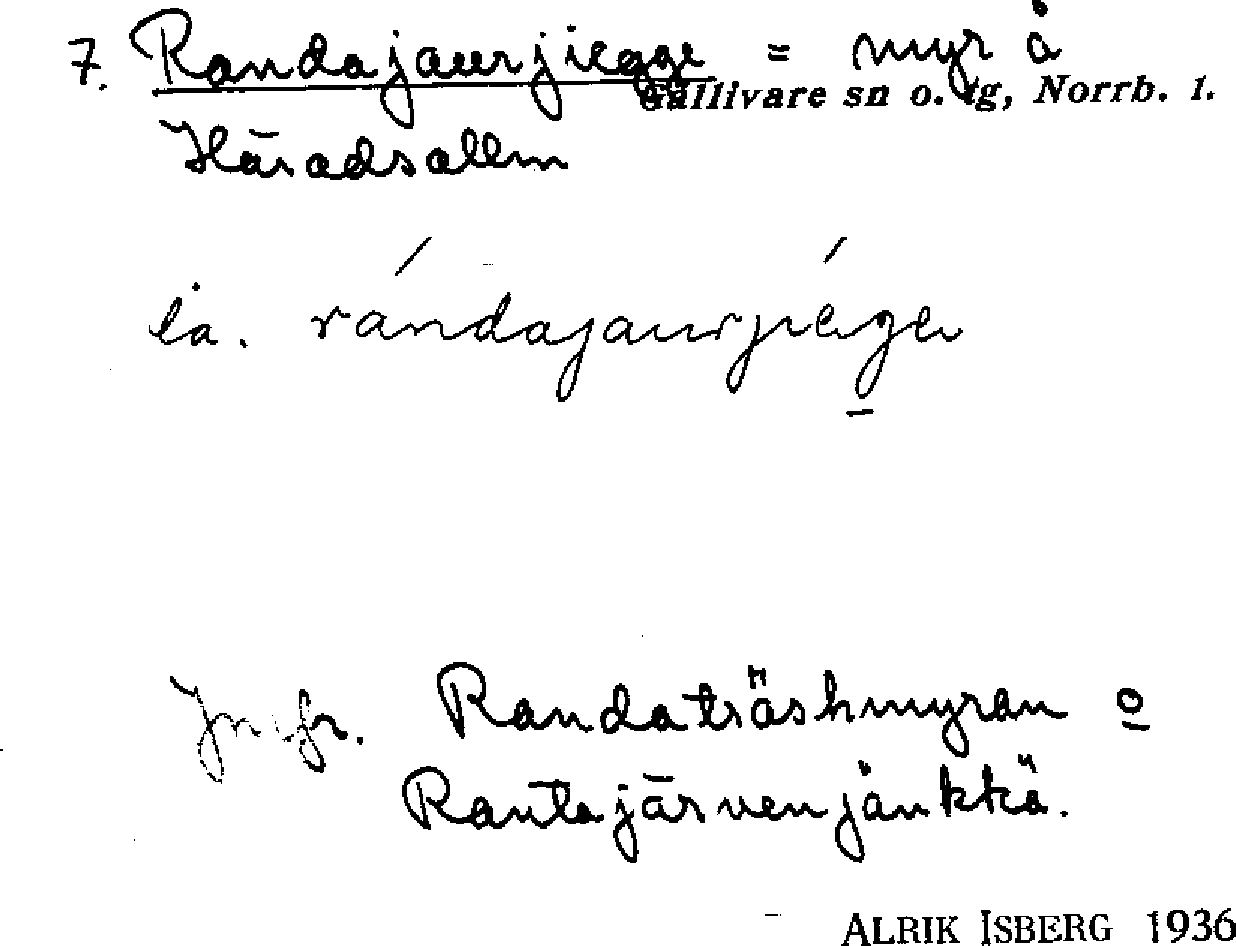 7. Randajaurjiegge = myr å
Gällivare sn o. tg, Norrb. l.
Häradsallm
la. rándajaurjiégge
Jmfr. Randaträskmyran o
Rantajärvenjänkkä.
ALRIK ISBERG 1936